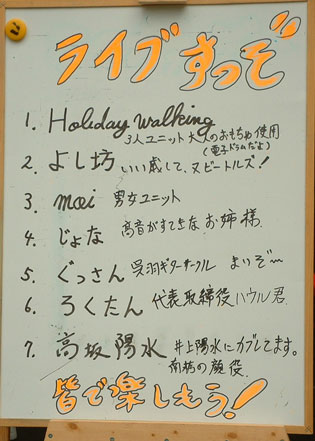 ライブすっぞ
1. Holiday walking
3人ユニット 大人のおもちゃ使用
(電子ドラムだよ)
2. よし坊 いい感して、ヌビートルズ!
3. moi 男女ユニット
4. じょな 高音がすてきな お姉様
5. ぐっさん 呉羽ギターサークル よいぞ〜
6. ろくたん 代表取締役ハウル君
7. 高坂陽水 井上陽水にカブレてます。
南栃の顔役
皆で楽しもう!